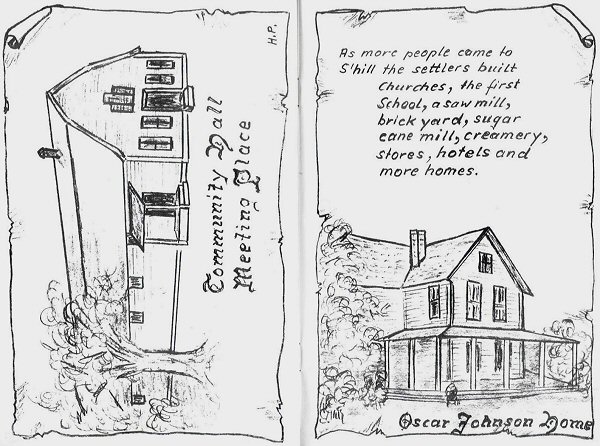 H.P.
Community Hall
Meeting Place
As more people came to
S'hill the settlers built
churches, the first
School, a saw mill,
brick yard, sugar
cane mill, creamery,
stores, hotels and
more homes.
Oscar Johnson Home